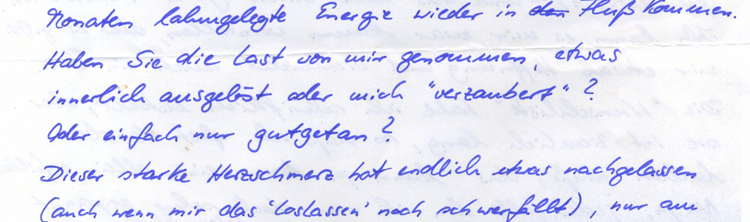 Monaten lahmgelegte Energie wieder in den Fluß kommen.
Haben Sie die Last von mir genommen, etwas
innerlich ausgelöst oder mich "verzaubert"?
Oder einfach nur gutgetan?
Dieser starke Herzschmerz hat endlich etwas nachgelassen
(auch wenn mir das 'Loslassen' noch schwerfällt), nur am